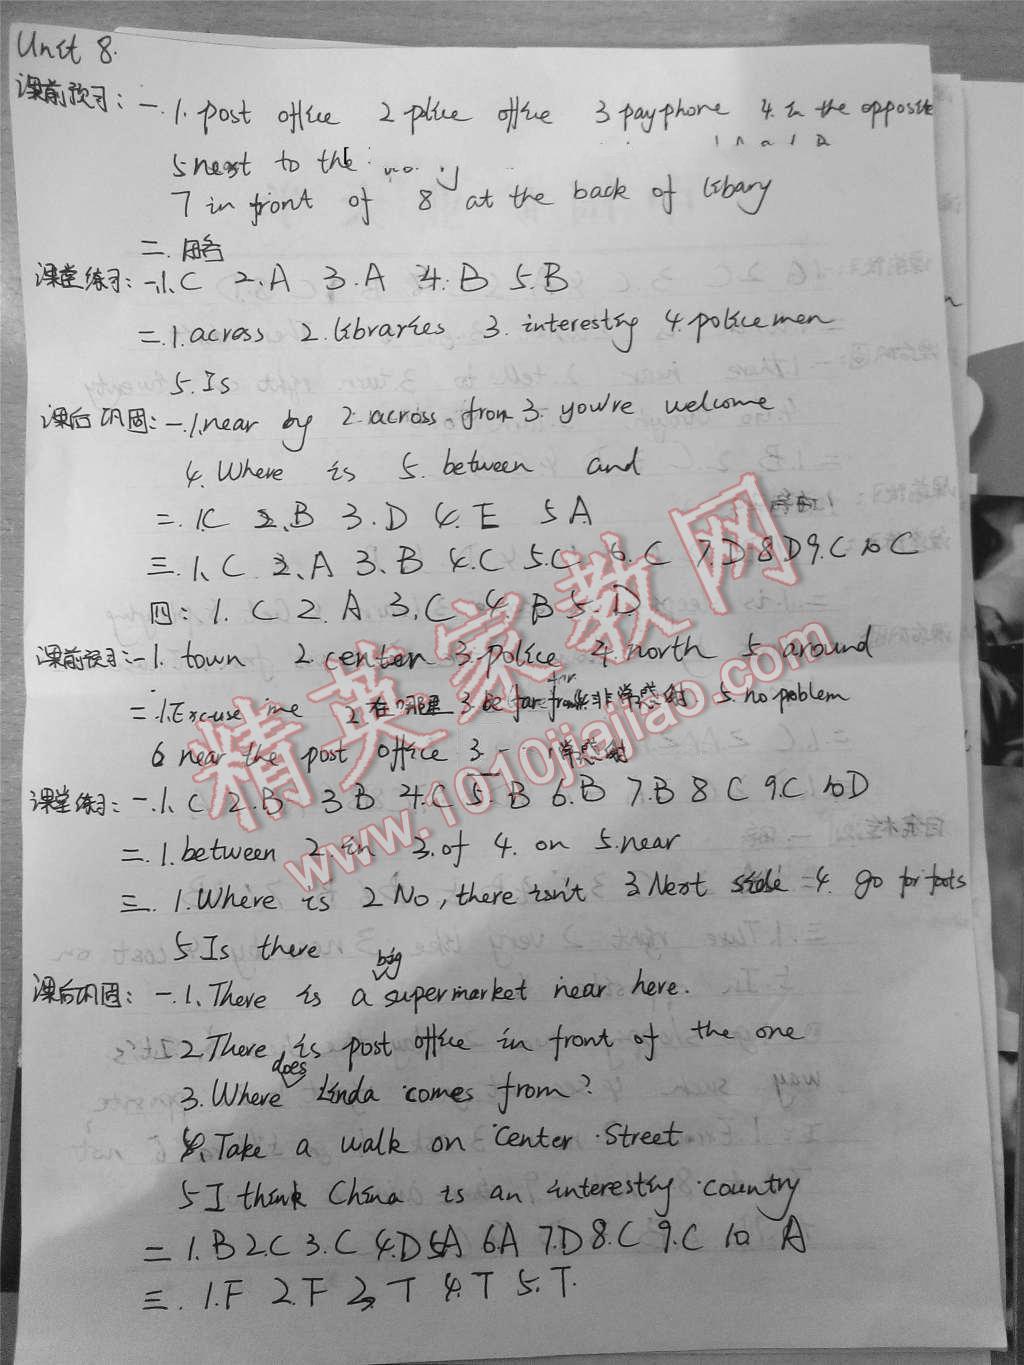 Unit 8.
课前预习: 一.1. post office 2 plice office 3 payphone 4. in the opposite
5 next to the
7 in front of 8 at the back of libary
二. 略
课堂练习: 一.1.C 2.A 3.A 4.B 5.B
二.1.across 2.libraries 3. interesting 4.policemen
5.Is
课后巩固: 一.1.near by 2.across from 3. you're welcome
4. Where is 5. between and
二. 1.C 2、B 3.D 4.E 5 A.
三. 1、C 2、A 3、B 4.C 5.C 6.C 7.D 8 D 9.C 10 C
四: 1. C 2. A 3.C 4.B 5.D
课前预习: 一1. town 2.center 3.police 4 north 5 around
二.1.Excuse me 2 在哪里 3.be far from 非常感谢 5.no problem
6 near the post office
课堂练习: 一.1.C 2.B 3 B 4.C 5.B 6.B 7.B 8 C 9.C 10 D
二. 1.between 2.in 3.of 4. on 5.near
三. 1.Where is 2 No, there isn't 3.Next 4. go for
5 Is there
课后巩固: 一.1、There is a big supermarket near here.
2 There is post office in front of the one
3. Where does Linda comes from?
4、Take a walk on Center Street
5 I think China is an interesting country
二 1.B 2.C 3.C 4.D 5A 6.A 7.D 8.C 9.C 10 A
三. 1.F 2.F 3, T 4.T 5.T.
精英家教网
www.1010jiajiao.com